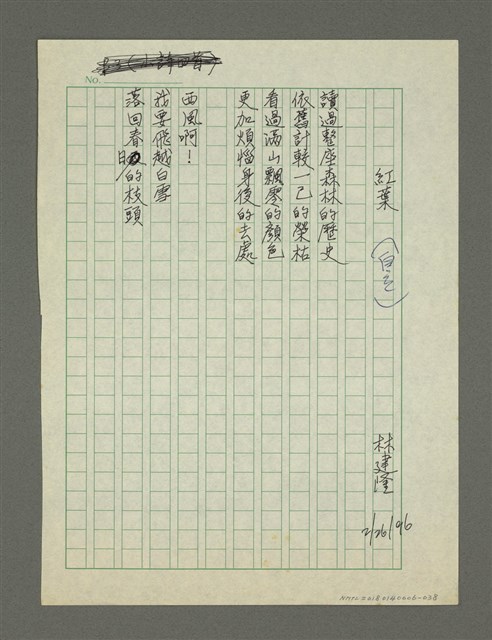 No.
紅葉 (自立)
林建隆
2/26/96
讀過整座森林的歷史
依舊計較一己的榮枯
看過滿山飄零的顏色
更加煩惱身後的去處
西風啊!
我要飛越白雪
落回春的枝頭
NMTL20180140006-038